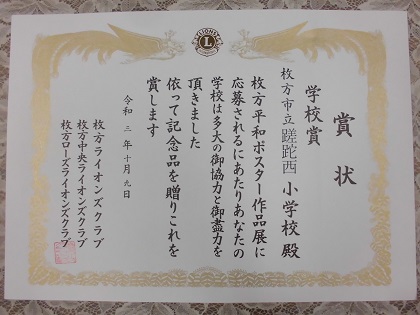 賞状
学校賞
枚方市立蹉跎西小学校殿
枚方平和ポスター作品展に
応募されるにあたりあなたの
学校は多大の御協力と御盡力を
頂きました
依って記念品を贈りこれを
賞します
令和三年十月九日
枚方ライオンズクラブ
枚方中央ライオンズクラブ
枚方ローズライオンズクラブ